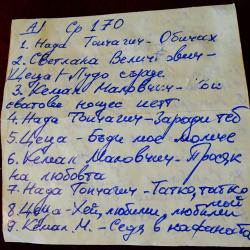 A1 Ср 170
1. Нада Топчагич - Обичах
2. Светлана Величкович -
Цеца / Лудо сърце
3. Кемал Маловчич - Кой
сватове нощес
4. Нада Топчагич - Заради теб
5. Цеца - Бъди мое момче
6. Кемал Маловчич - Просяк
на любовта
7. Нада Топчагич - Татко, татко
мой
8. Цеца - Хей, любими, любими
9. Кемал М. - Седя в кафаната